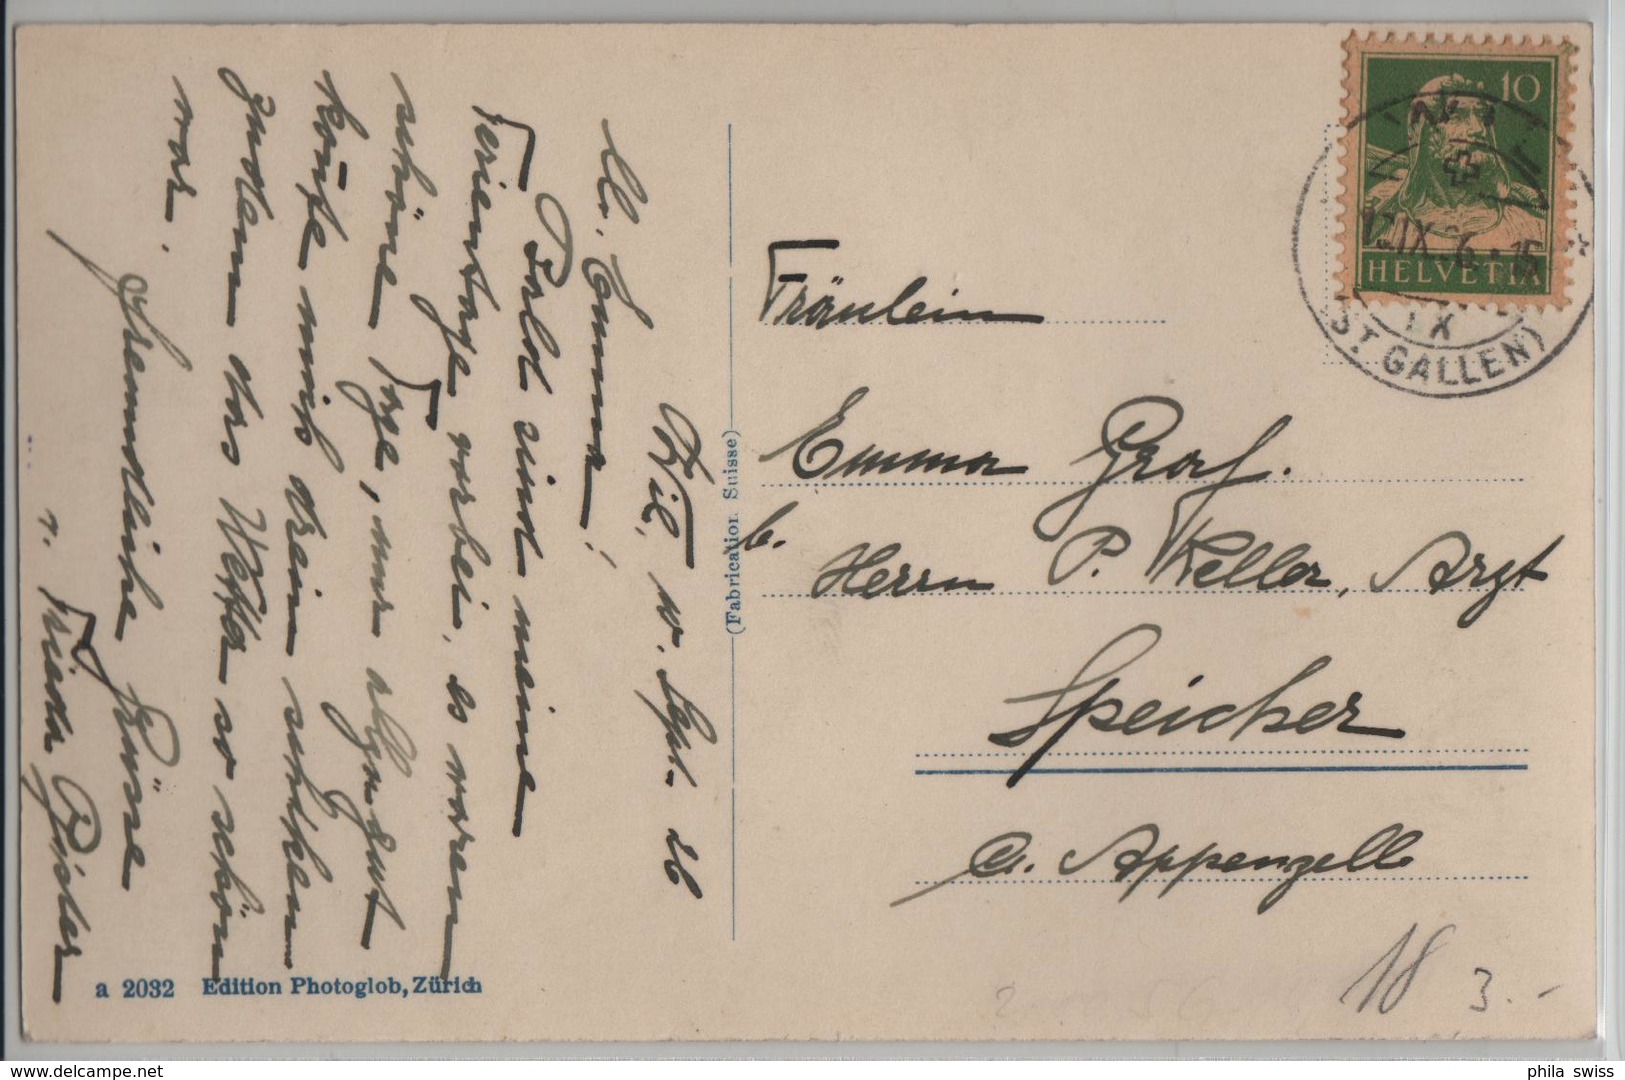 Wil, 10. Sept. 26
Lb. Emma!
Bald sind meine
Ferientage vorbei, es waren
schöne Tage, nur allzugut
konnte mich drein schicken
zudem das Wetter so schön
war.
Freundliche Grüsse
v. Frieda
a 2032 Edition Photoglob, Zürich
(Fabrication Suisse)
10
HELVETIA
IX
(ST GALLEN)
Fräulein
Emma Graf.
b. Herrn P. Keller, Arzt
Speicher
Ct. Appenzell
18
3.-
phila swiss